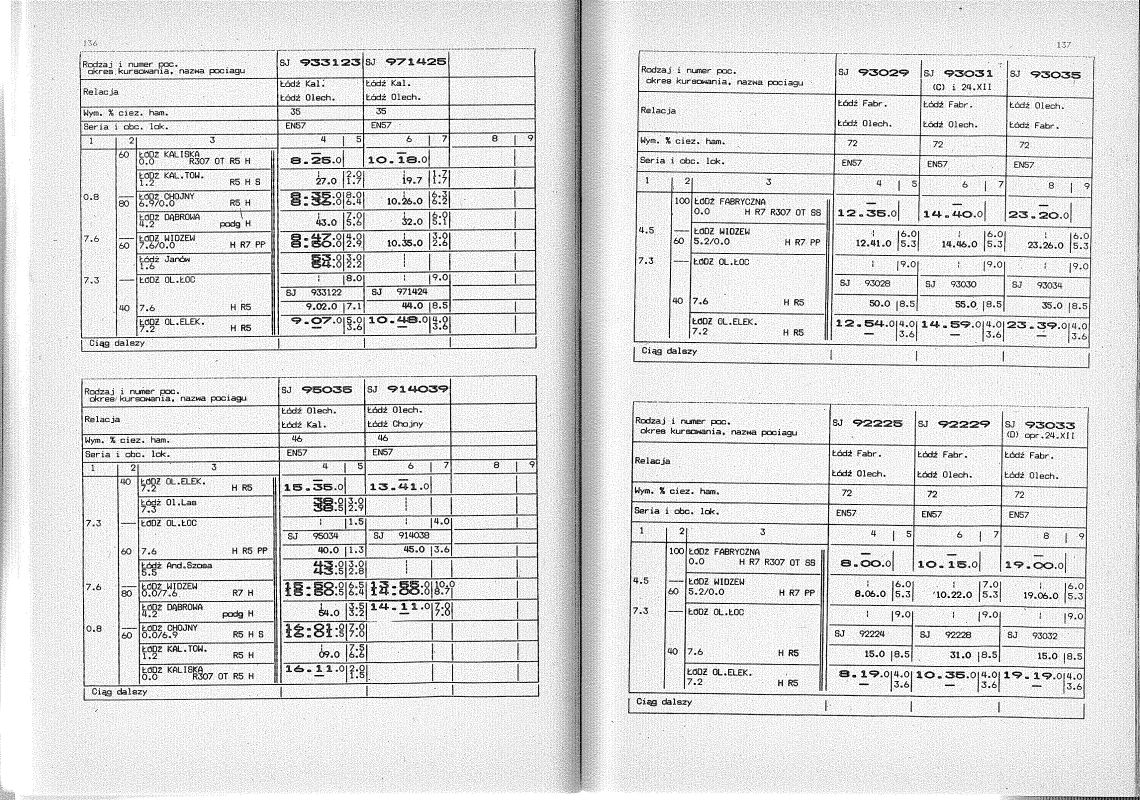 136
Rodzaj i numer poc. SJ 933123 SJ 971425
okres kursowania, nazwa pociagu
Relacja Łódź Kal. Łódź Kal.
Łódź Olech. Łódź Olech.
Wym. % ciez. ham. 35 35
Seria i obc. lok. EN57 EN57
1 2 3 4 5 6 7 8 9
60 ŁÓDŹ KALISKA
0.0 R307 OT R5 H 8.25.0 10.18.0
ŁÓDŹ KAL.TOW. 2.0 1.7
1.2 R5 H S 27.0 1.7 19.7 1.7
0.8 ŁÓDŹ CHOJNY 8.0 6.3
80 6.9/0.0 R5 H 6.4 10.26.0 6.2
ŁÓDŹ DĄBROWA 7.0 6.0
4.2 podg H 43.0 5.6 32.0 5.1
7.6 ŁÓDŹ WIDZEW 8.47.0 4.0 3.0
60 7.6/0.0 H R7 PP 8.50.0 2.9 10.35.0 2.6
Łódź Janów 53.0 3.0
1.6 54.0 2.2
7.3 ŁÓDŹ OL.ŁOC 8.0 9.0
SJ 933122 SJ 971424
40 7.6 H R5 9.02.0 7.1 44.0 8.5
ŁÓDŹ OL.ELEK. 9.07.0 5.0 10.48.0 4.0
7.2 H R5 — 3.6 — 3.6
Ciąg dalszy
Rodzaj i numer poc. SJ 95035 SJ 914039
okres kursowania, nazwa pociagu
Relacja Łódź Olech. Łódź Olech.
Łódź Kal. Łódź Chojny
Wym. % ciez. ham. 46 46
Seria i obc. lok. EN57 EN57
1 2 3 4 5 6 7 8 9
40 ŁÓDŹ OL.ELEK.
7.2 H R5 15.35.0 13.41.0
Łódź Ol.Las 38.0 3.0
7.3 38.5 2.9
7.3 ŁÓDŹ OL.ŁOC 1.5 4.0
SJ 95034 SJ 914038
60 7.6 H R5 PP 40.0 1.3 45.0 3.6
Łódź And.Szosa 43.0 3.0
5.5 43.5 2.8
7.6 ŁÓDŹ WIDZEW 15:50.0 6.5 13:55.0 10.0
80 0.0/7.6 R7 H 6.4 8.7
ŁÓDŹ DĄBROWA 3.5 14.11.0 7.0
4.2 podg H 54.0 3.2 — 7.0
0.8 ŁÓDŹ CHOJNY 7.0
60 0.0/6.9 R5 H S 7.0
ŁÓDŹ KAL.TOW. 7.5
1.2 R5 H 09.0 6.6
ŁÓDŹ KALISKA 16.11.0 2.0
0.0 R307 OT R5 H — 1.5
Ciąg dalszy
137
Rodzaj i numer poc. SJ 93029 SJ 93031 SJ 93035
okres kursowania, nazwa pociagu (C) i 24.XII
Relacja Łódź Fabr. Łódź Fabr. Łódź Olech.
Łódź Olech. Łódź Olech. Łódź Fabr.
Wym. % ciez. ham. 72 72 72
Seria i obc. lok. EN57 EN57 EN57
1 2 3 4 5 6 7 8 9
100 ŁÓDŹ FABRYCZNA — — —
0.0 H R7 R307 OT SS 12.35.0 14.40.0 23.20.0
4.5 ŁÓDŹ WIDZEW 6.0 6.0 6.0
60 5.2/0.0 H R7 PP 12.41.0 5.3 14.46.0 5.3 23.26.0 5.3
7.3 ŁÓDŹ OL.ŁOC 9.0 9.0 9.0
SJ 93028 SJ 93030 SJ 93034
40 7.6 H R5 50.0 8.5 55.0 8.5 35.0 8.5
ŁÓDŹ OL.ELEK. 12.54.0 4.0 14.59.0 4.0 23.39.0 4.0
7.2 H R5 — 3.6 — 3.6 — 3.6
Ciąg dalszy
Rodzaj i numer poc. SJ 92225 SJ 92229 SJ 93033
okres kursowania, nazwa pociagu (D) opr.24.XII
Relacja Łódź Fabr. Łódź Fabr. Łódź Fabr.
Łódź Olech. Łódź Olech. Łódź Olech.
Wym. % ciez. ham. 72 72 72
Seria i obc. lok. EN57 EN57 EN57
1 2 3 4 5 6 7 8 9
100 ŁÓDŹ FABRYCZNA — — —
0.0 H R7 R307 OT SS 8.00.0 10.15.0 19.00.0
4.5 ŁÓDŹ WIDZEW 6.0 7.0 6.0
60 5.2/0.0 H R7 PP 8.06.0 5.3 10.22.0 5.3 19.06.0 5.3
7.3 ŁÓDŹ OL.ŁOC 9.0 9.0 9.0
SJ 92224 SJ 92228 SJ 93032
40 7.6 H R5 15.0 8.5 31.0 8.5 15.0 8.5
ŁÓDŹ OL.ELEK. 8.19.0 4.0 10.35.0 4.0 19.19.0 4.0
7.2 H R5 — 3.6 — 3.6 — 3.6
Ciąg dalszy